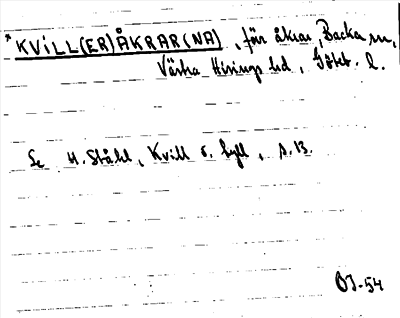 *KVILL(ER)ÅKRAR(NA), för åkrar, Backa sn,
Västra Hisings hd, Göteb. l.
Se H. Ståhl, Kvill o. tyll, s. 13.
OJ-54